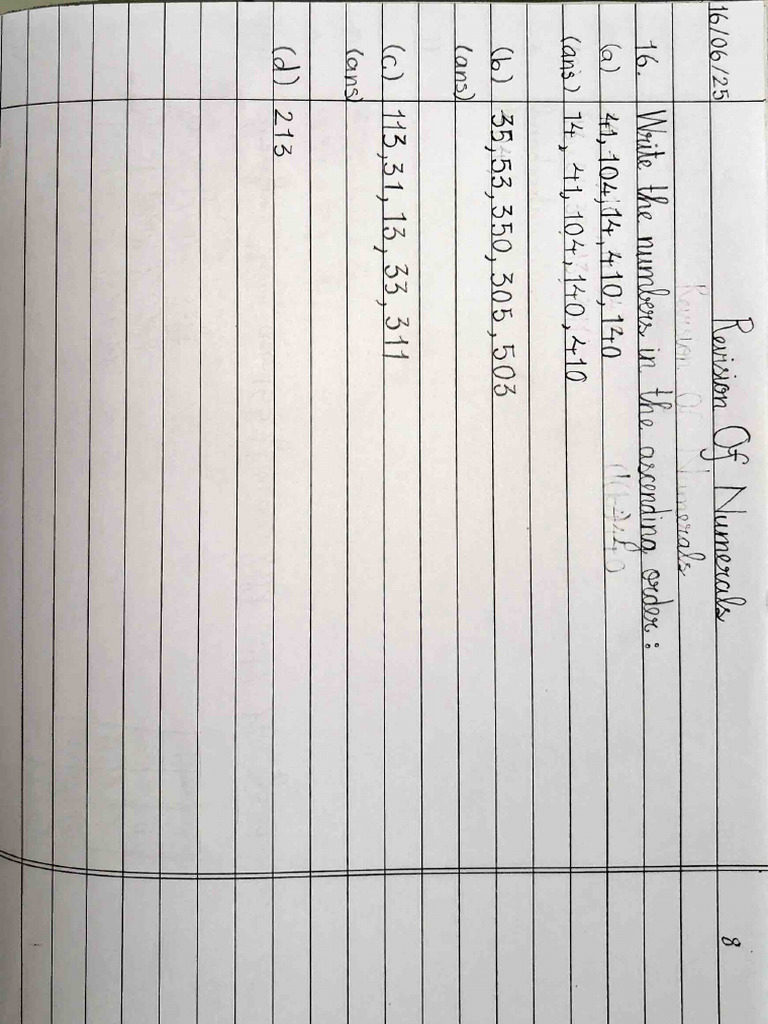 16/06/25
Revision Of Numerals
8
Revision Of Numerals
16. Write the numbers in the ascending order :
(a) 41, 104, 14, 410, 140
(ans) 14, 41, 104, 140, 410
(b) 35, 53, 350, 305, 503
(ans)
(c) 113, 31, 13, 33, 311
(ans)
(d) 213